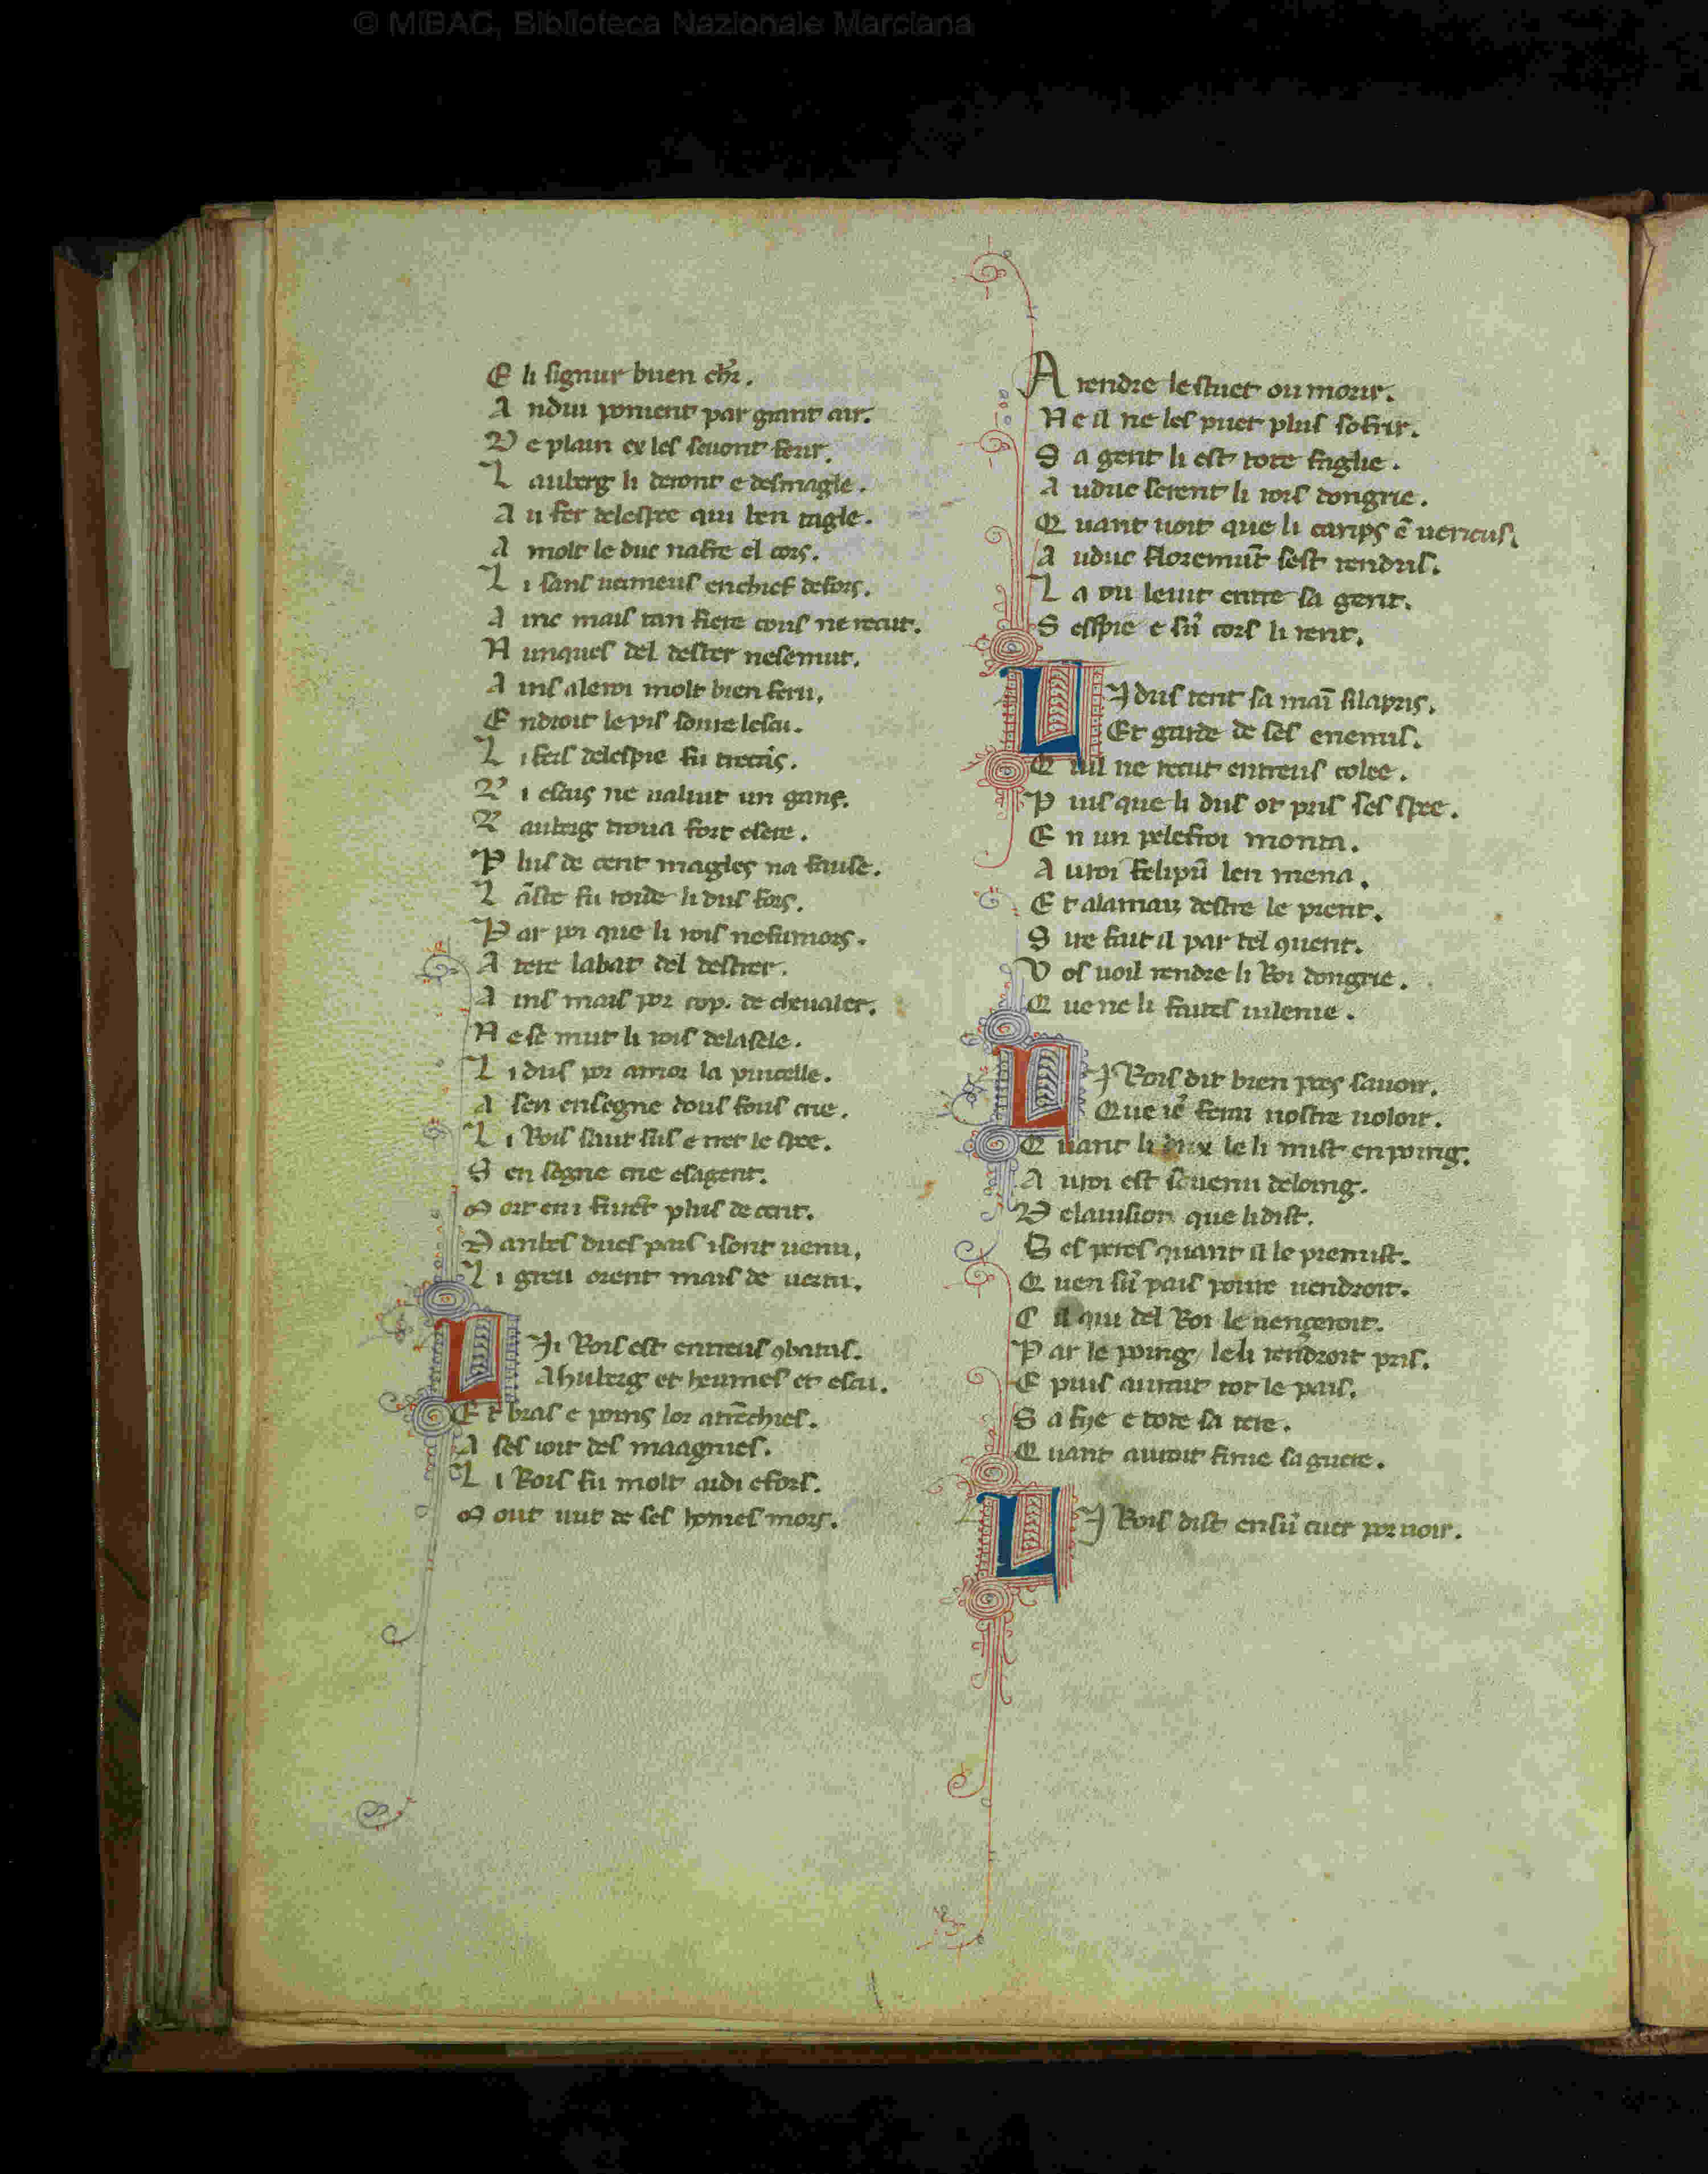 © MiBAC, Biblioteca Nazionale Marciana
E li signur buen chr̃.
A ndui poment par grant air.
D e plain es les seuont ferir.
L auberg li deront e desmagle.
A u fer delespee qui ben tagle.
A molt le duc nafre el cors.
L i sans uermeus enchief defors.
A inc mais tan fiere cous ne recut.
N unques del destrer nesemut.
A ins aleroi molt bien feru.
E ndroit le pis soure lescu.
L i fers delespie fu trecãs.
L i escus ne ualiut un gans.
L auberg troua fort esere.
P lus de cent magles na fause.
L ãste fu roide li dus fors.
P ar poi que li rois nefumors.
A tere labat del destrer.
A ins mais por cop. de cheualer.
N e se mut li rois delasele.
L i dus por amor la pucelle.
A sen ensegne dous fous crie.
L i Rois saut sus e tret le spee.
S en segne crie esagent.
M ort en i fiuẽt plus de cent.
D anbes dues pars isont uenu.
L i greu orent mais de uertu.
L Ii Rois est entreus ꝯbatus.
Ahuberg et heumes et escu.
E t bras e poins lor atrẽchies.
A ses uoit des maagnies.
L i Rois fu molt ardi efors.
M out uut de ses homes mors.
A rendre lestuet ou morir.
N e il ne les puet plus sofrir.
S a gent li est tote faglie.
A uduc serent li rois dongrie.
Q uant uoit que li camps ẽ uencus.
A uduc floremũt sest rendus.
L a ou leuit entre sa gent.
S esspie e sũ cors li rent.
L I dus tent sa maĩ silapris.
Et garde de ses enemis.
Q uil ne recut entreus colee.
P uis que li dus ot pris ses spee.
E n un palefroi monta.
A uroi felipũ len mena.
E t alaman destre le prent.
S ire fait il par tel ꝯuent.
V os uoil rendre li Roi dongrie.
Q ue ne li faites uilenie.
L I Rois dit bien poes sauoir.
Que ie ferai uostre uoloir.
Q uant li dux le li mist enpoing.
A uroi est souenu deloing.
D elauision que lidist.
S es peres quant il le premist.
Q uen sũ pais poure uendroit.
C il qui del Roi le uengeroit.
P ar le poing leli rendroit pris.
E puis auroit tot le pais.
S a fye e tote sa tere.
Q uant auroit finie saguere.
L I Rois dist ensũ cuer por uoir.